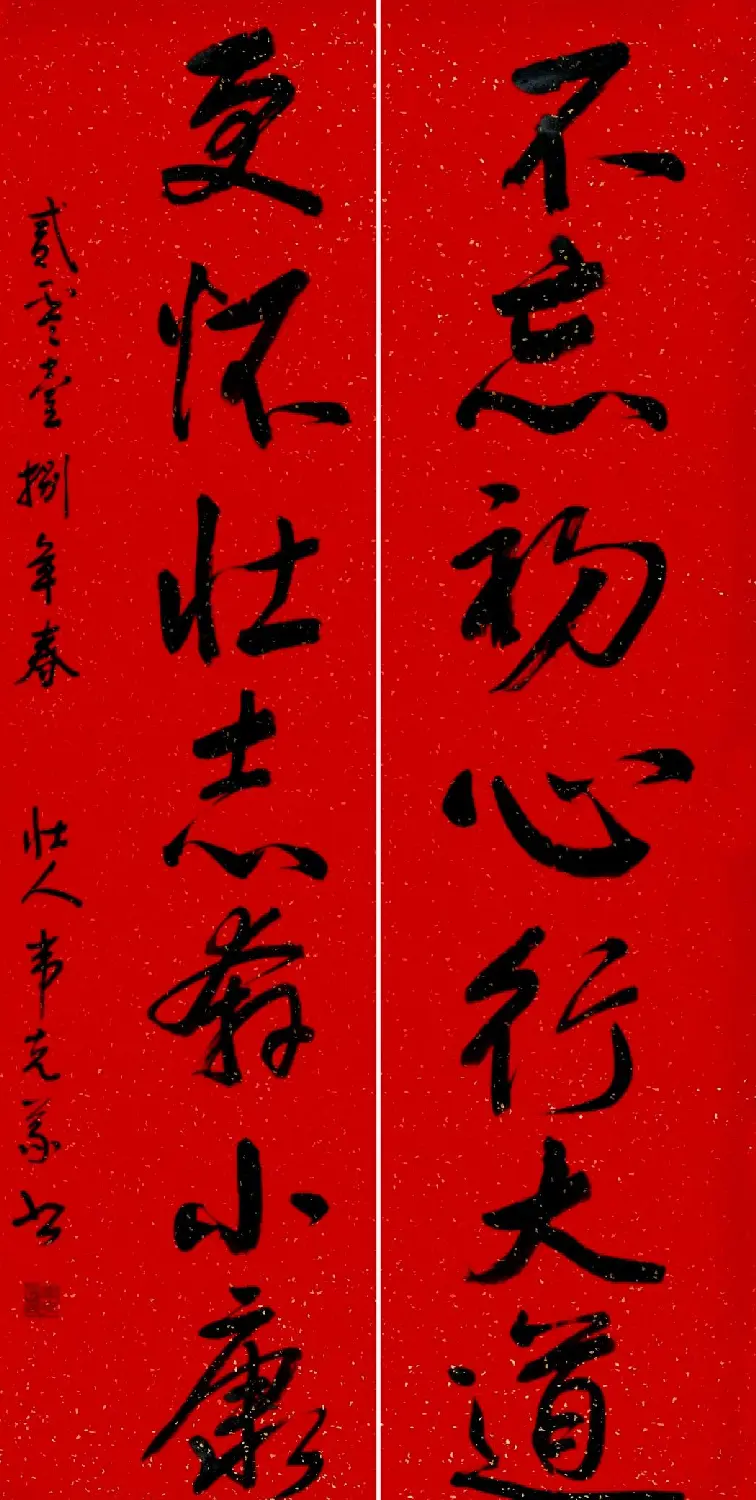 不忘初心行大道
更怀壮志奔小康
贰零壹捌年春 壮人韦克义书